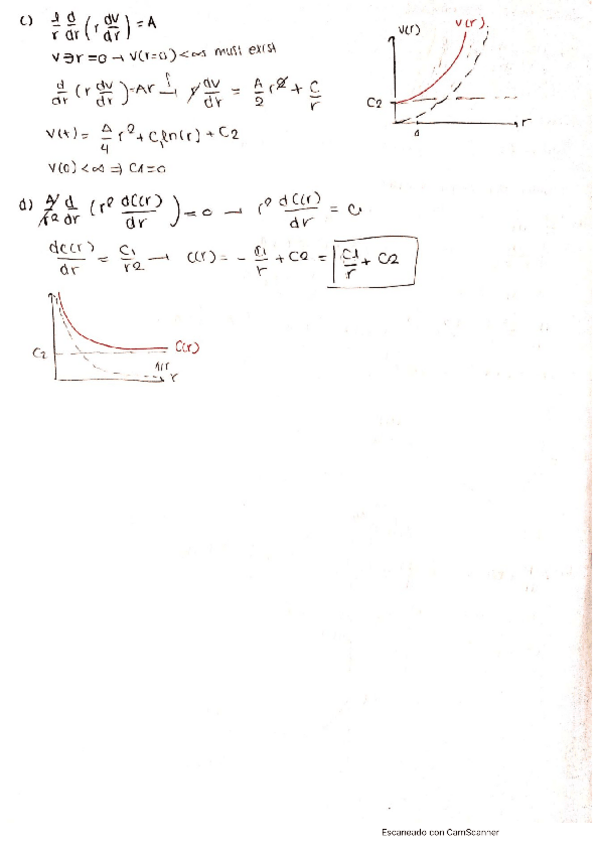 c) 1/r d/dr (r dv/dr) = A
v∋r=0 → v(r=0)<∞ must exist
d/dr (r dv/dr) = Ar → r dv/dr = A/2 r² + C/r
v(r) = A/4 r² + C₁ln(r) + C2
v(0)<∞ ⇒ C1=0
v(r)
v(r)
C2
r
d) d/dr (r² dC(r)/dr) = 0 → r² dC(r)/dr = C₁
dC(r)/dr = C₁/r2 → C(r) = - C1/r + C2 = C1/r + C2
C2
C(r)
1/r
r
Escaneado con CamScanner